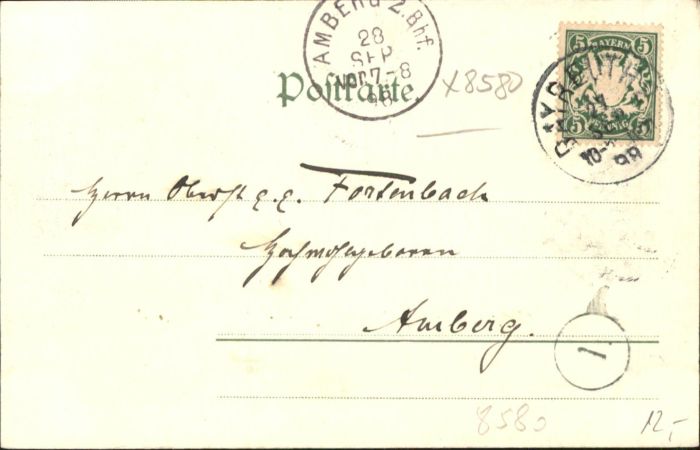 AMBERG 2.Bhf.
28
SEP
NOR 7-8
98
Postkarte.
X8580
5 BAYERN 5
5 PFENNIG 5
BAYREUTH
27
SEP
98
Herrn Oberst z.z. Fortenbach
Hochwohlgeboren
Amberg.
1.
8580
12,-